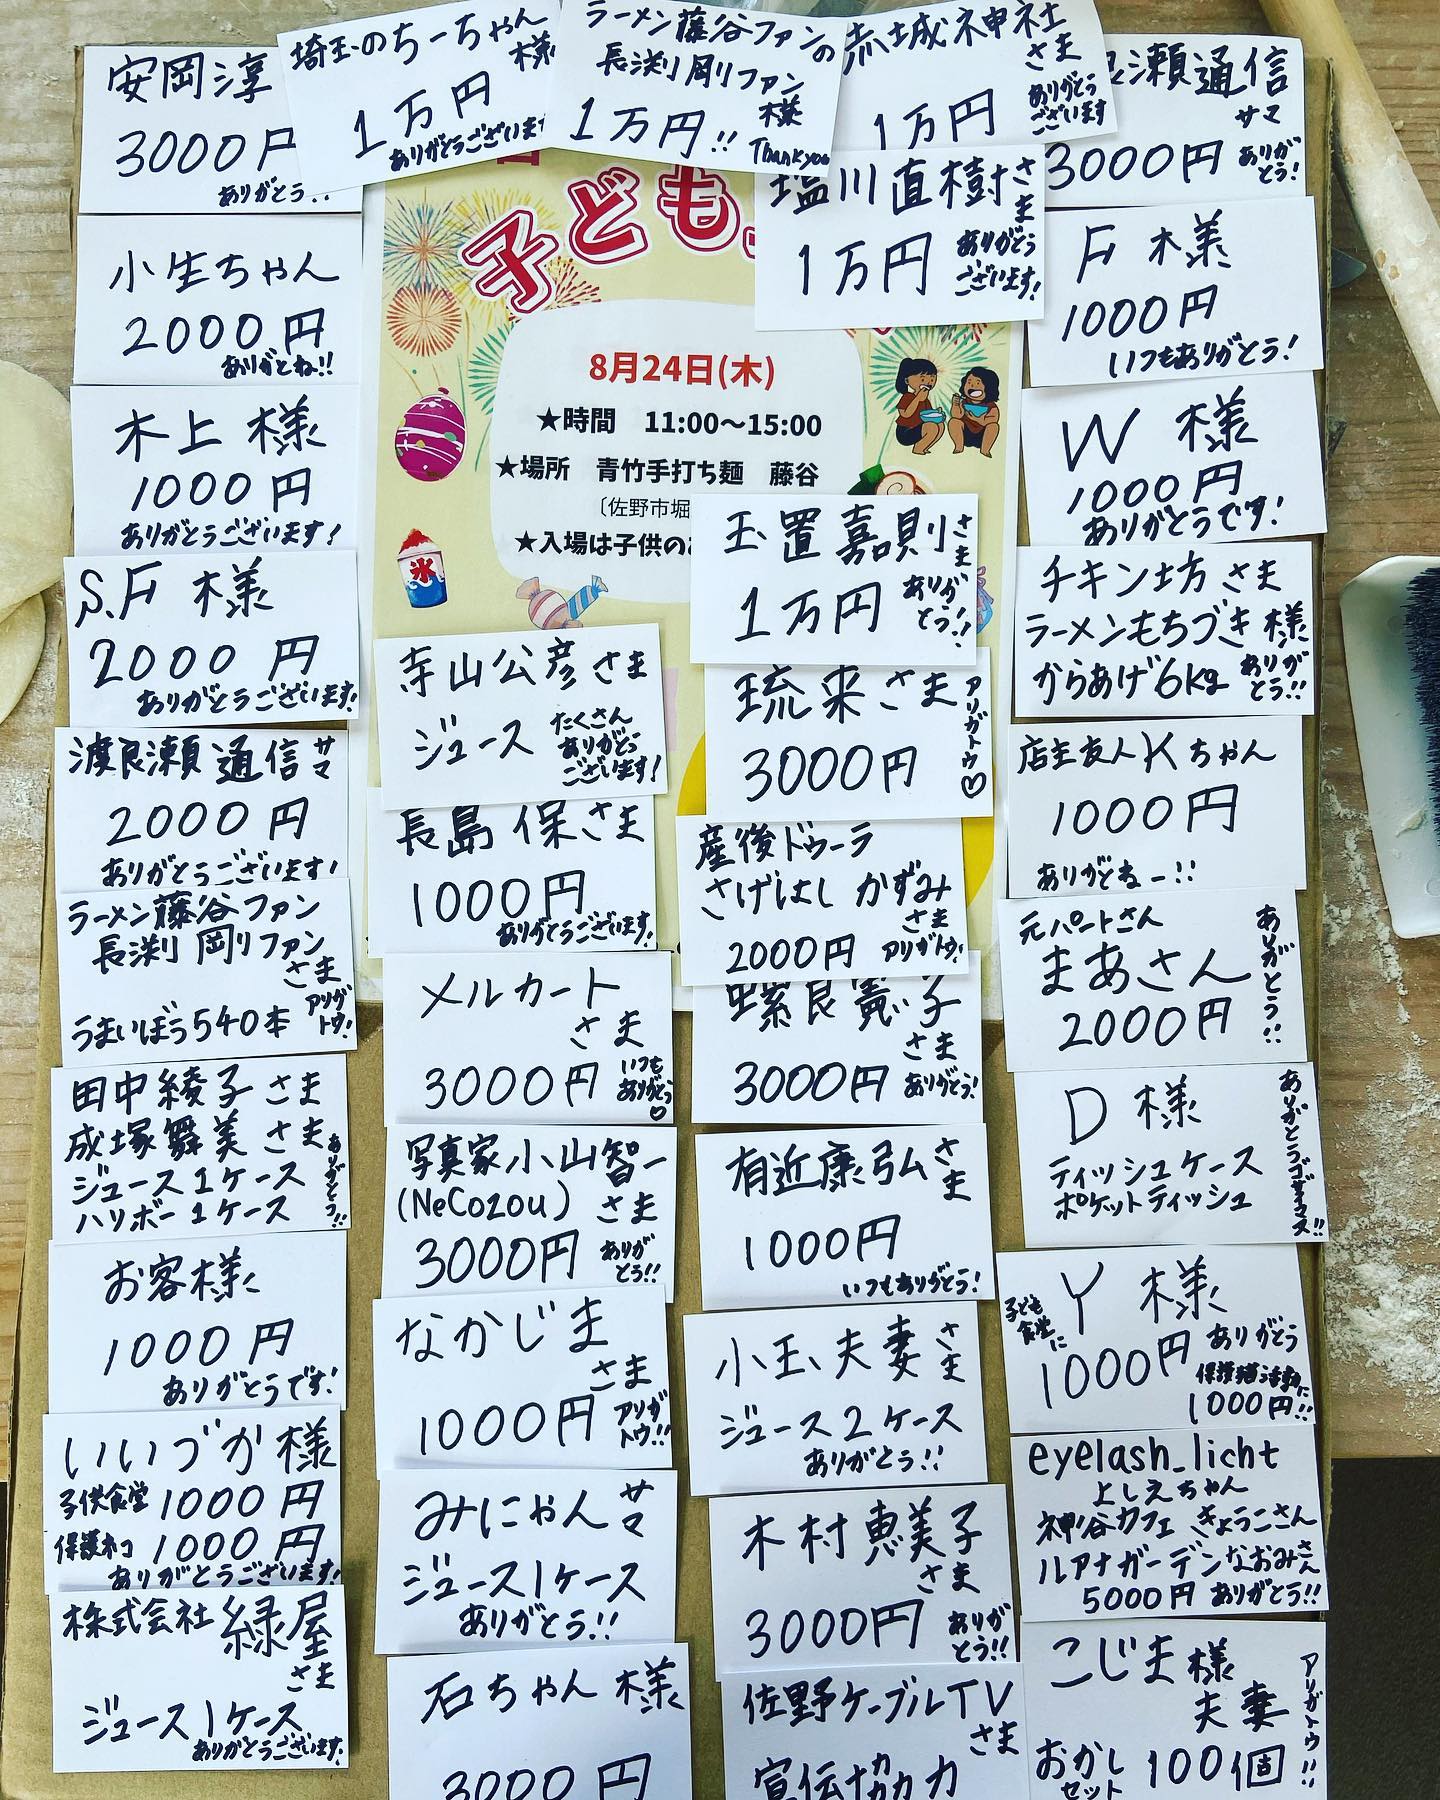 安岡淳
3000円
ありがとう!!
埼玉のちーちゃん
様
1万円
ありがとうございます
ラーメン藤谷ファンの
長渕剛ファン
様
1万円!!
Thank you
赤城神社
さま
1万円
ありがとう
ございます
良瀬通信
サマ
3000円
ありが
とう!
塩川直樹さま
1万円
ありがとう
ございます!
小生ちゃん
2000円
ありがとね!!
F 様
1000円
いつもありがとう!
木上 様
1000円
ありがとうございます!
W 様
1000円
ありがとうです!
S.F 様
2000円
ありがとうございます!
チキン土方さま
ラーメンもちづき様
からあげ6kg
ありが
とう!!
渡良瀬通信サマ
2000円
ありがとうございます!
店主友人Kちゃん
1000円
ありがとねー!!
ラーメン藤谷ファン
長渕剛ファン
さま
うまいぼう540本
アリガ
トウ!
元パートさん
まあさん
2000円
ありがとう!!
田中綾子さま
成塚舞美さま
ジュース1ケース
ハリボー1ケース
ありがとう!!
D 様
ティッシュケース
ポケットティッシュ
ありがとうゴザイマス!!
お客様
1000円
ありがとうです!
Y 様
子ども
食堂に
1000円
ありがとう
保護猫活動に
1000円!!
いいづか様
子供食堂 1000円
保護ネコ 1000円
ありがとうございます!
eyelash_licht
よしえちゃん
神谷カフェ きょうこさん
ルアナガーデンなおみさん
5000円 ありがとう!!
株式会社緑屋
さま
ジュース1ケース
ありがとうございます!
こじま様
夫妻
おかし
セット
100個
アリガトウ!!
子ども
8月24日(木)
★時間 11:00〜15:00
★場所 青竹手打ち麺 藤谷
〔佐野市堀
★入場は子供の
氷
玉置嘉則さま
1万円
ありが
とう!!
寺山公彦さま
ジュース
たくさん
ありがとう
ございます!
琉来さま
3000円
アリガトウ♡
長島保さま
1000円
ありがとうございます!
産後ドゥーラ
さげはし かずみ
さま
2000円
アリガトウ!
メルカート
さま
3000円
いつも
ありがとう
♡
子
さま
3000円
ありがとう!
写真家小山智一
(NeCozou) さま
3000円
ありが
とう!!
有近康弘さま
1000円
いつもありがとう!
なかじま
さま
1000円
アリガ
トウ!!
小玉夫妻さま
ジュース2ケース
ありがとう!!
みにゃんサマ
ジュース1ケース
ありがとう!!
木村恵美子
さま
3000円
ありが
とう!!
石ちゃん様
3000円
佐野ケーブルTV
さま
宣伝協力